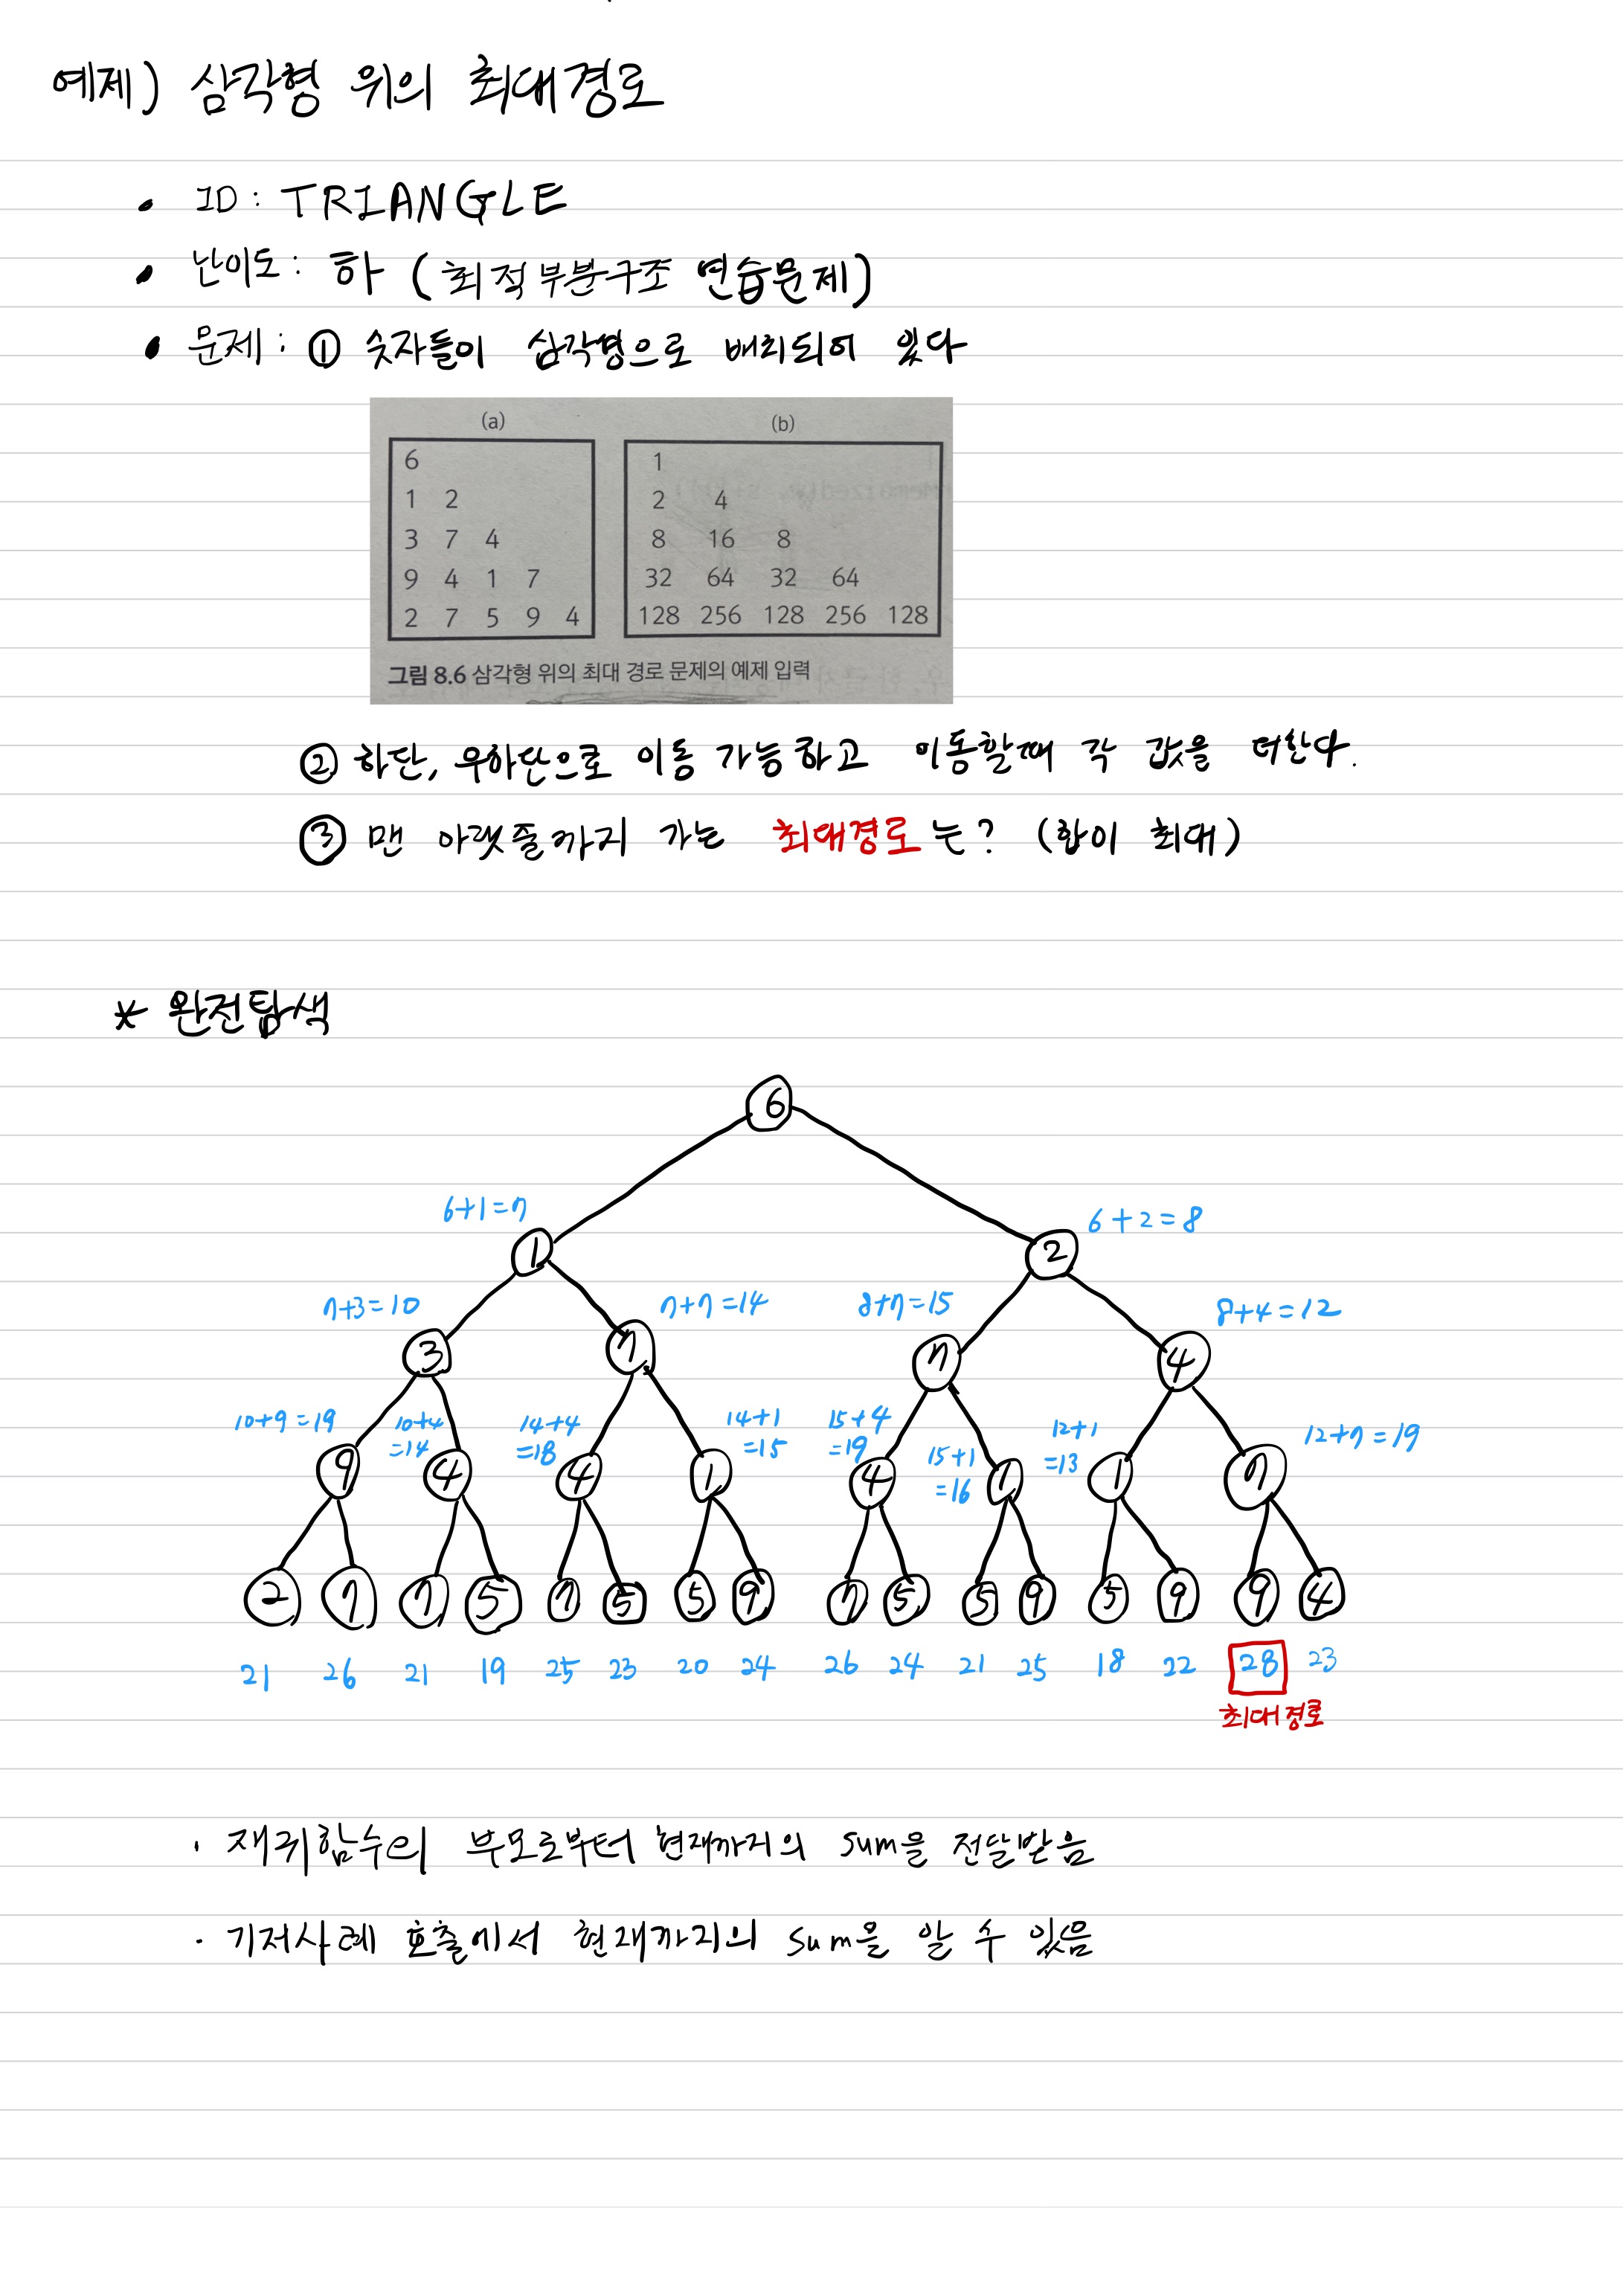 예제) 삼각형 위의 최대경로
• ID: TRIANGLE
• 난이도: 하 (최적부분구조 연습문제)
• 문제: ① 숫자들이 삼각형으로 배치되어 있다
(a) (b)
6
1 2
3 7 4
9 4 1 7
2 7 5 9 4
1
2 4
8 16 8
32 64 32 64
128 256 128 256 128
그림 8.6 삼각형 위의 최대 경로 문제의 예제 입력
② 하단, 우하단으로 이동 가능하고 이동할때 각 값을 더한다.
③ 맨 아랫줄까지 가는 최대경로는? (합이 최대)
* 완전탐색
6
6+1=7 6+2=8
1 2
7+3=10 7+7=14 8+7=15 8+4=12
3 7 7 4
10+9=19 10+4=14 14+4=18 14+1=15 15+4=19 15+1=16 12+1=13 12+7=19
9 4 4 1 4 1 1 7
2 7 7 5 7 5 5 9 7 5 5 9 5 9 9 4
21 26 21 19 25 23 20 24 26 24 21 25 18 22 28 23
최대경로
· 재귀함수의 부모로부터 현재까지의 sum을 전달받음
· 기저사례 호출에서 현재까지의 sum을 알 수 있음